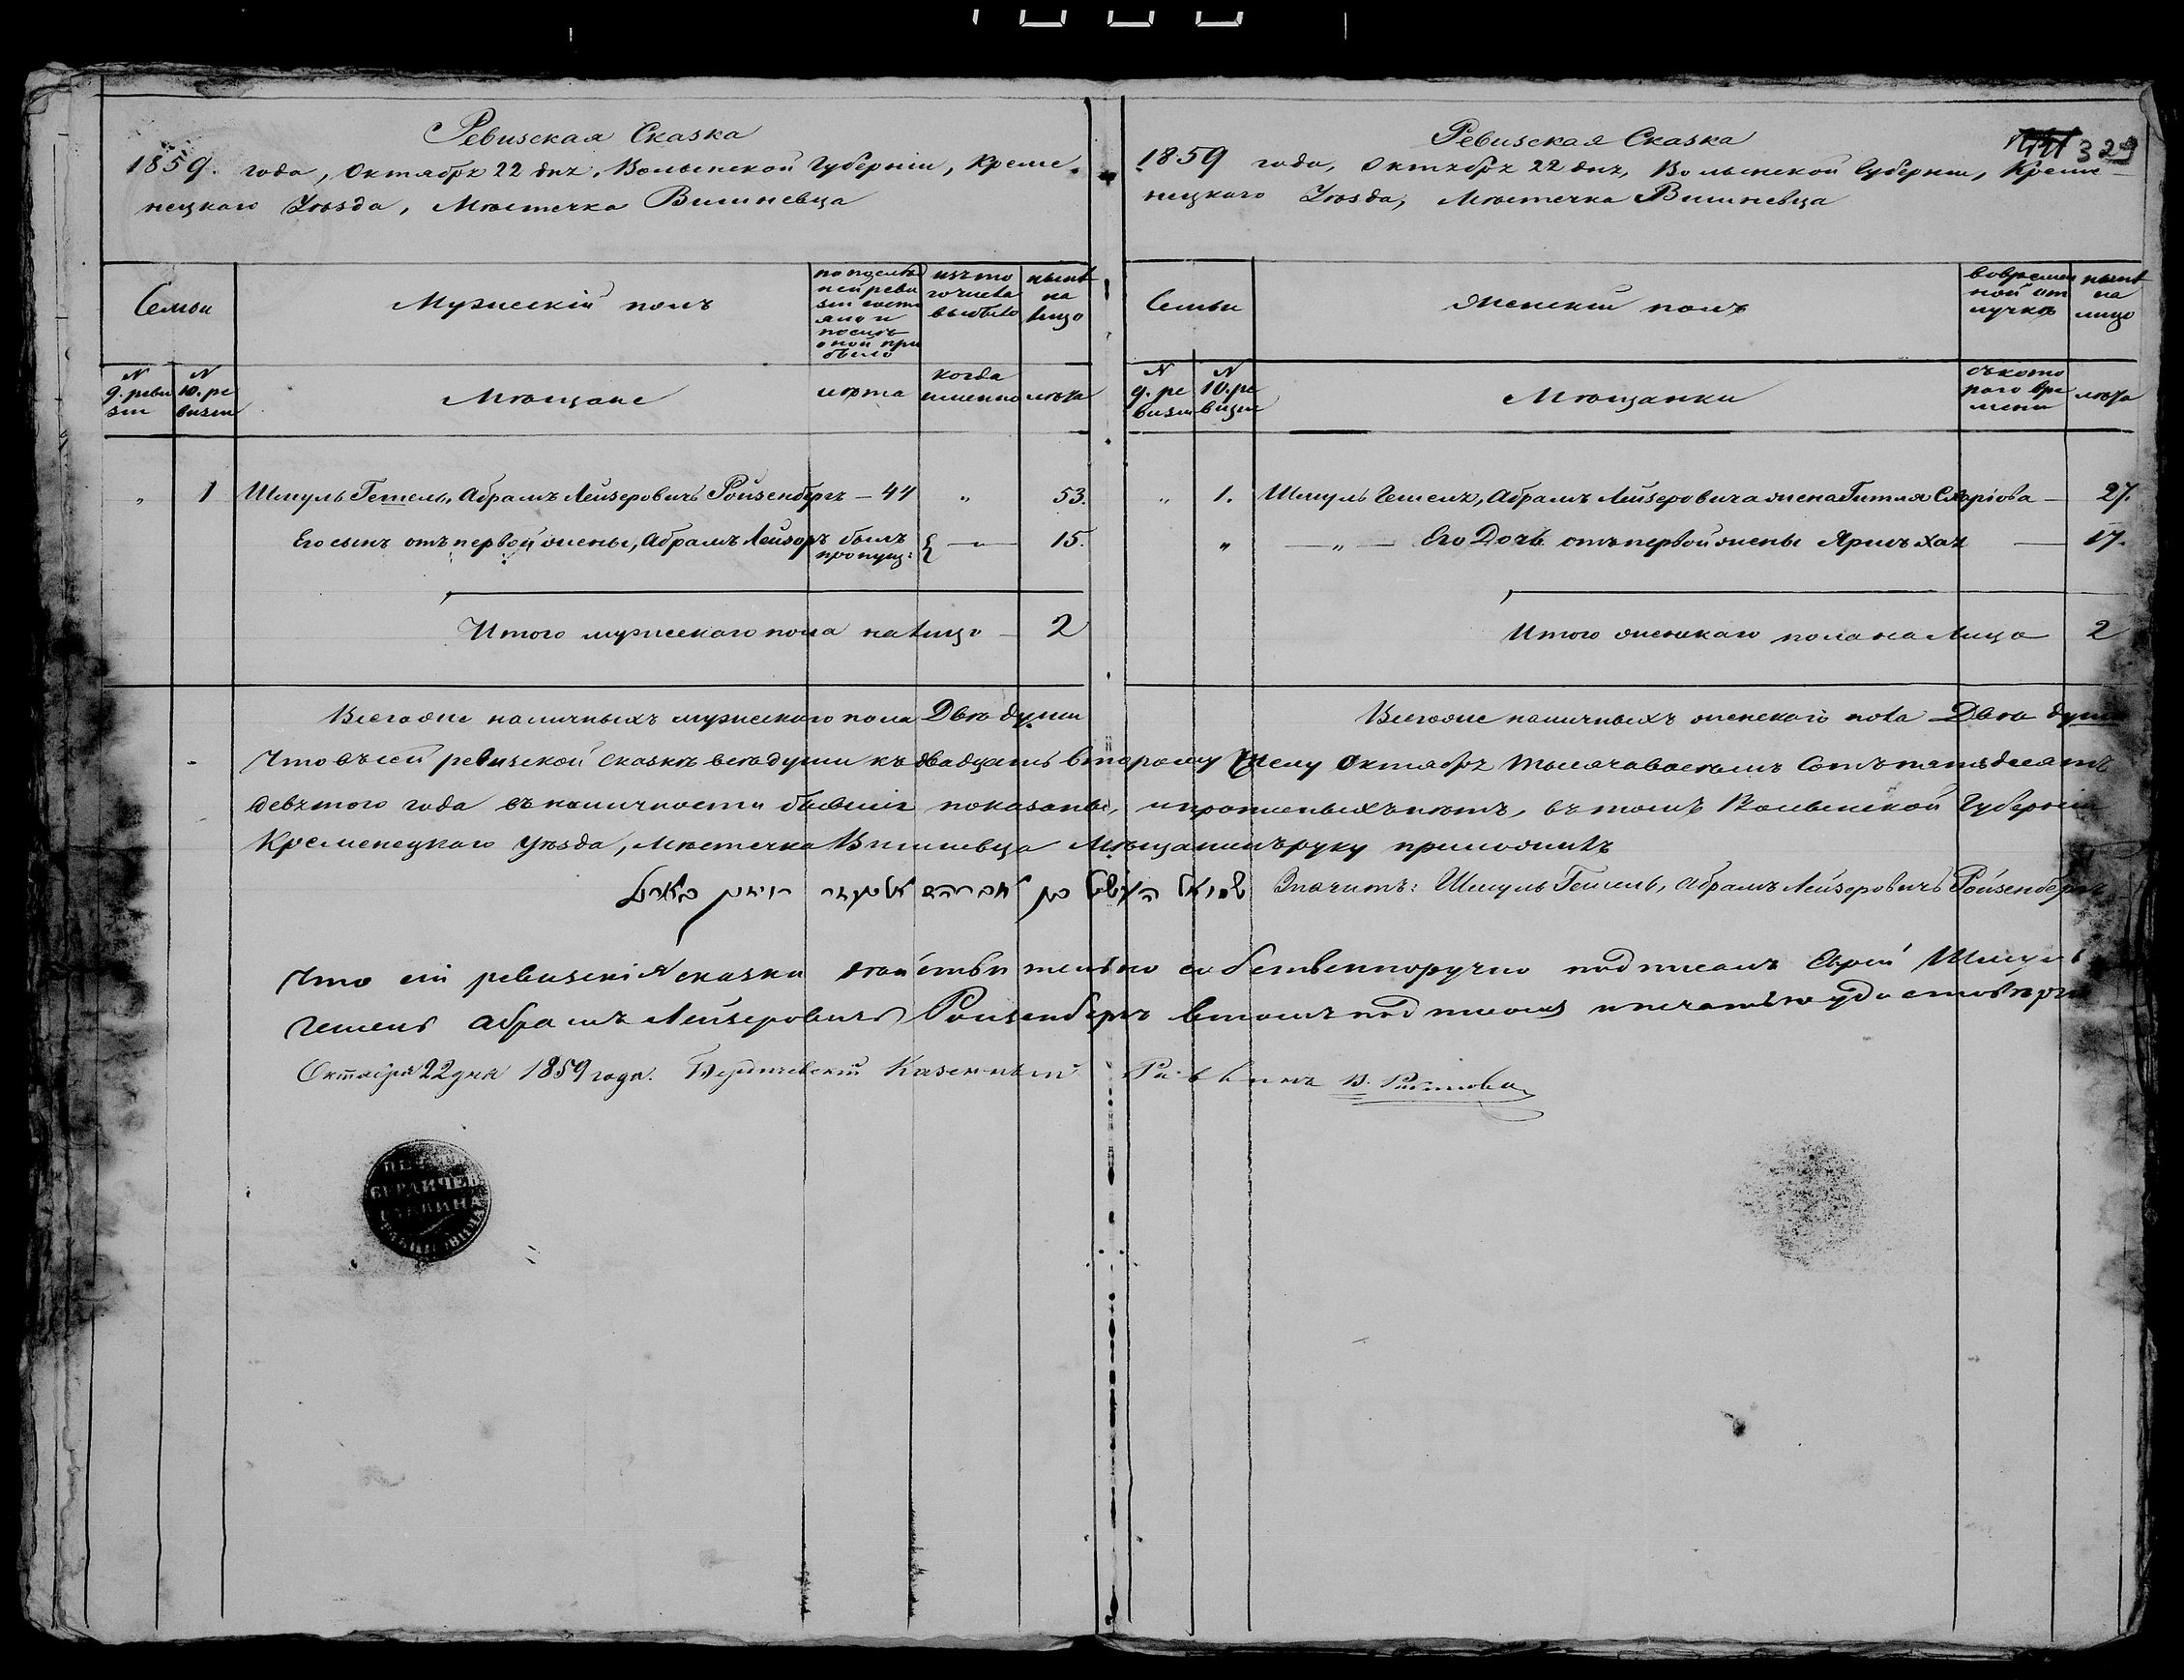 Ревизская Сказка
1859. года, Октября 22 дня, Волынской Губерніи, Креме-
нецкаго Уѣзда, Мѣстечка Вишневца
Семьи
Мужескій полъ
по послѣд
ней реви
зіи состо
яло и
послѣ
оной при
было
изъ то
го числа
выбыло
нынѣ
на
лицо
N
9. реви
зіи
N
10. ре
визіи
Мѣщане
лѣта
когда
именно
лѣта
„ 1 Шмуль Гешель, Абрамъ Лейзеровичъ Ройзенбергъ — 44 „ 53.
Его сынъ отъ первой жены, Абрамъ Лейзоръ былъ пропущ: — „ — 15.
Итого мужескаго пола на лицо — 2
Всего же наличныхъ мужескаго пола Двѣ души
Ревизская Сказка
329
1859 года, Октября 22 дня, Волынской Губерніи, Креме-
нецкаго Уѣзда, Мѣстечка Вишневца
Семьи
Женскій полъ
во времен
ной от
лучкѣ
нынѣ
на
лицо
N
9. ре
визіи
N
10. ре
визіи
Мѣщанки
съ кото
раго вре
мени
лѣта
„ 1. Шмуль Гешеля, Абрамъ Лейзеровича жена Гитля — 27.
„ — „ — Его Дочь отъ первой жены — 17.
Итого женскаго пола на Лицо 2
Всего же наличныхъ женскаго пола Двѣ души
Что въ сей ревизской сказкѣ всѣ души къ двадцать второму Числу Октября тысяча восемь сотъ пятьдесятъ
девятого года въ наличности бывшія показаны, и прописныхъ нѣтъ, въ томъ Волынской Губерніи
Кременецкаго Уѣзда, Мѣстечка Вишневца Мѣщанинъ руку приложилъ
Значитъ: Шмуль Гешель, Абрамъ Лейзеровичъ Ройзенбергъ
Что сій ревизскія сказки дѣйствительно собственноручно подписалъ Еврей Шмуль
Гешель Абрамъ Лейзеровичъ Ройзенбергъ въ томъ подписомъ и печатью удостовѣряю
Октября 22 дня 1859 года. Бердичевскій Казенный Раввинъ
БЕРДИЧЕВ
РАВВИНА